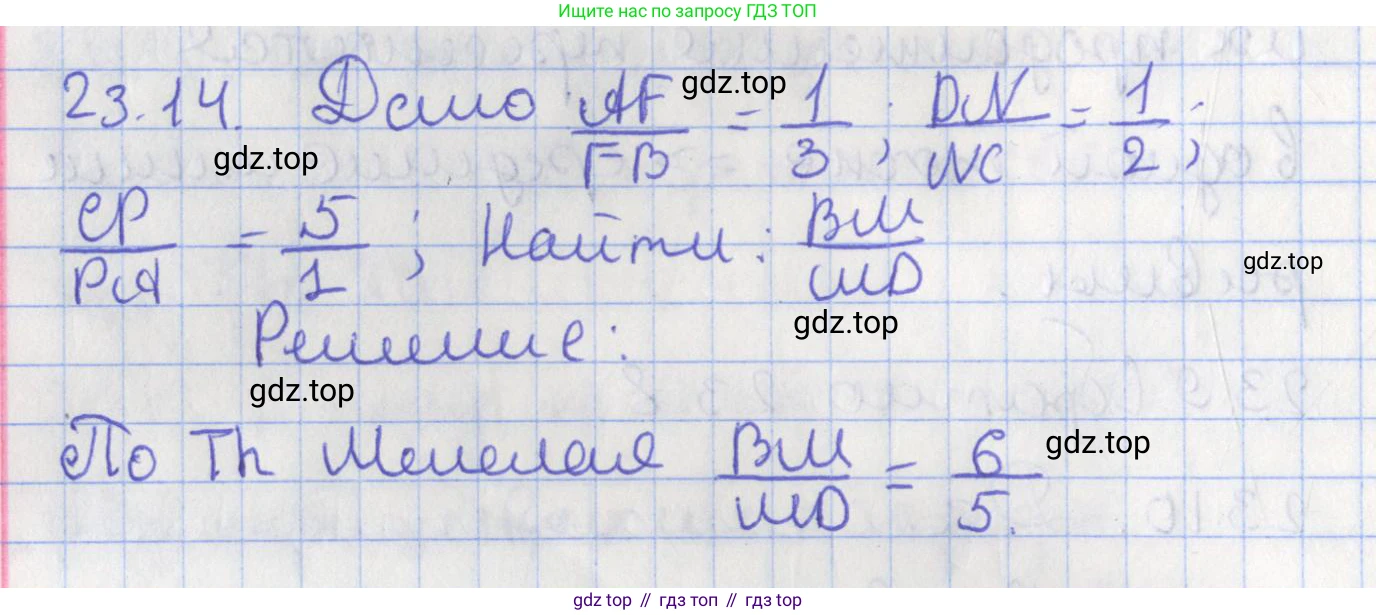 Ищите нас по запросу ГДЗ ТОП
23.14. Дано AF/FB = 1/3; DN/NC = 1/2;
gdz.top
gdz.top
CP/PA = 5/1; Найти: BM/MD
gdz.top
gdz.top
Решение:
gdz.top
По Th Менелая BM/MD = 6/5.
gdz.top
gdz top // гдз топ // gdz top